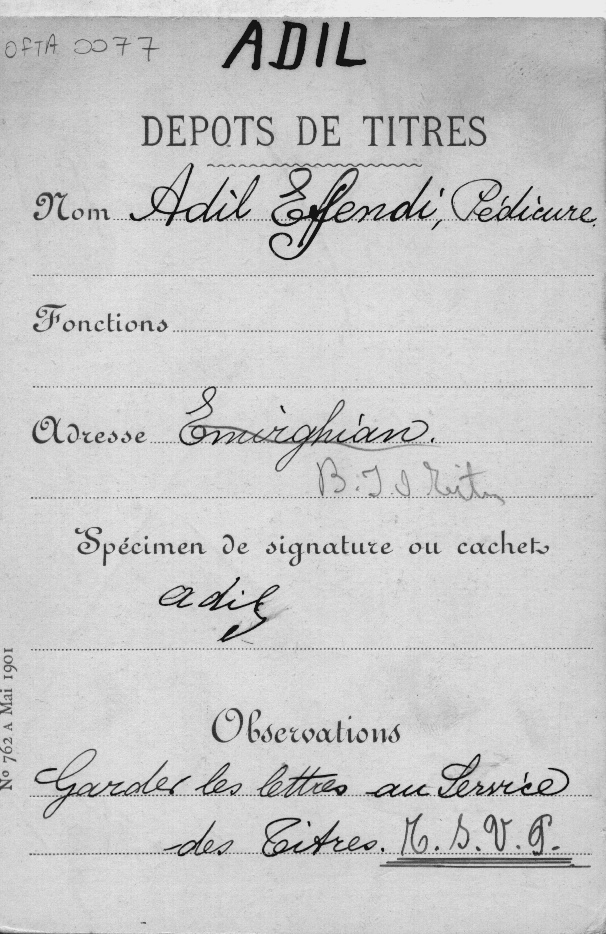 OFTA 0077
ADIL
DEPOTS DE TITRES
Nom Adil Effendi, Pédicure.
Fonctions
Adresse Emirghian.
B. I.
Spécimen de signature ou cachet
adil
Observations
Garder les lettres au Service
des Titres. T. S. V. P.
No 762 A Mai 1901